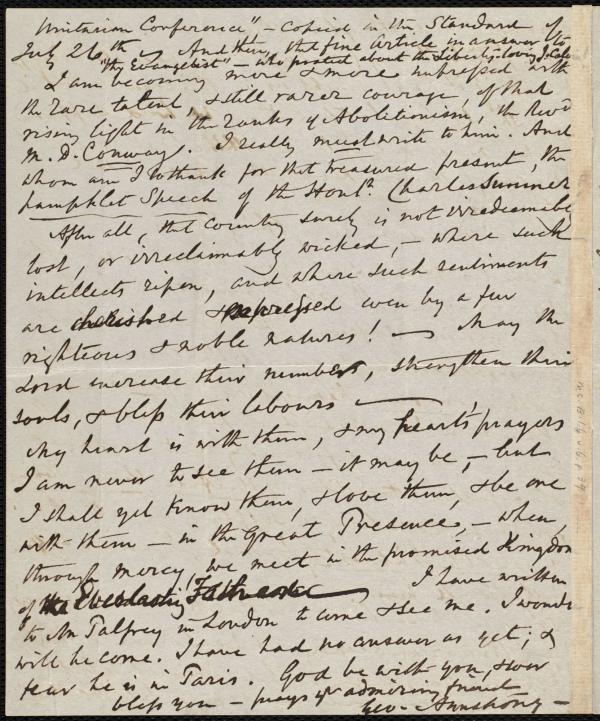 Unitarian Conference" – copied in the Standard of
July 26th – And then, that fine Article in answer to
"the Evangelist" – who prated about the Liberty-loving
I am becoming more & more impressed with
the rare talent, & still rarer courage, of that
rising light in the ranks of Abolitionism, the Revd
M. D. Conway. I really must write to him. And
whom am I to thank for that treasured present, the
pamphlet Speech of the Honl. Charles Sumner
After all, that country surely is not irredeemably
lost, or irreclaimably wicked, – where such
intellects ripen, and where such sentiments
are cherished & expressed even by a few
righteous & noble natures! – May the
Lord increase their numbers, strengthen their
souls, & bless their labours – !
My heart is with them, & my heart's prayers
I am never to see them – it may be, – but
I shall yet know them, & love them, & be one
with them – in the Great Presence, – when,
through mercy, we meet in the promised Kingdom
of the Everlasting Father – I have written
to Mr Palfrey in London to come & see me. I wonder
will he come. I have had no answer as yet; &
fear he is in Paris. God be with you, & ever
bless you – prays yr admiring friend
Geo. Armstrong –